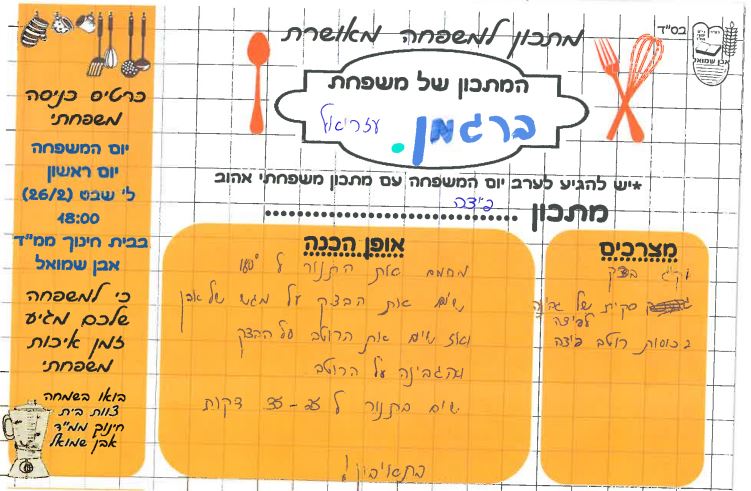 בס"ד
אבן שמואל
מתכון למשפחה מאושרת
המתכון של משפחת
ברגמן עזריאל
*יש להגיע לערב יום המשפחה עם מתכון משפחתי אהוב
מתכון פיצה
מצרכים
ק"ג בצק
סקית של גבינה
לפיצה
2 כוסות רוטב פיצה
אופן הכנה
מחמם את התנור ל 180°
שים את הבצק על מגש של אבן
ואז שים את הרוטב על הבצק
והגבינה על הרוטב
שים בתנור ל 25-35 דקות
בתאיבון!
כרטיס כניסה
משפחתי
יום המשפחה
יום ראשון
ל' שבט (26/2)
18:00
בבית חינוך ממ"ד
אבן שמואל
כי למשפחה
שלכם מגיע
זמן איכות
משפחתי
בואו בשמחה
צוות בית
חינוך ממ"ד
אבן שמואל